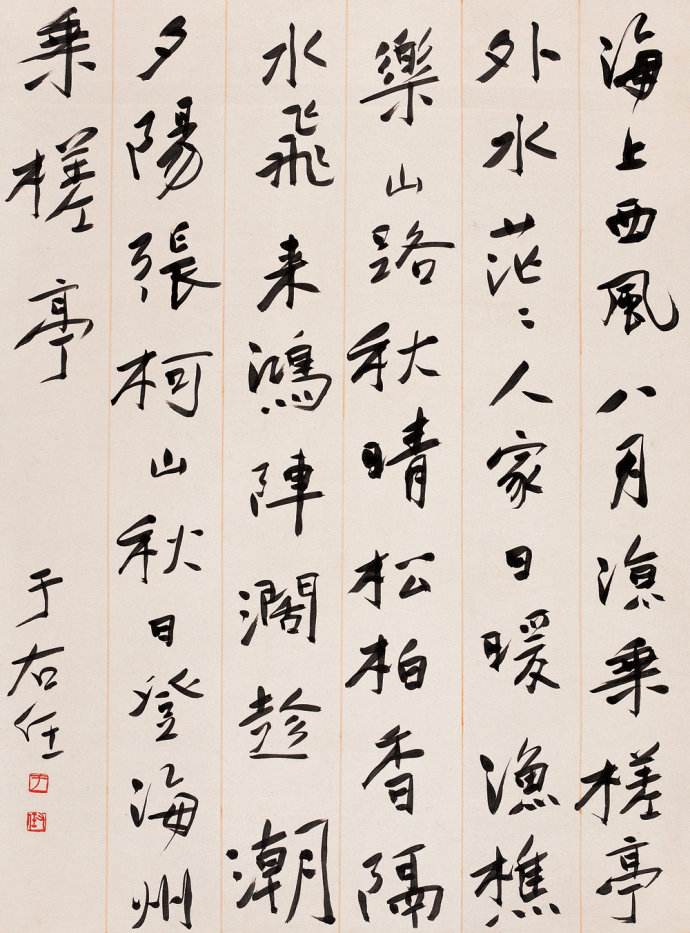 海上西風八月涼乘槎亭
外水茫〻人家日暖漁樵
樂山路秋晴松柏香隔
水飛来鴻陣濶趁潮
夕陽張柯山秋日登海州
乘槎亭
于右任